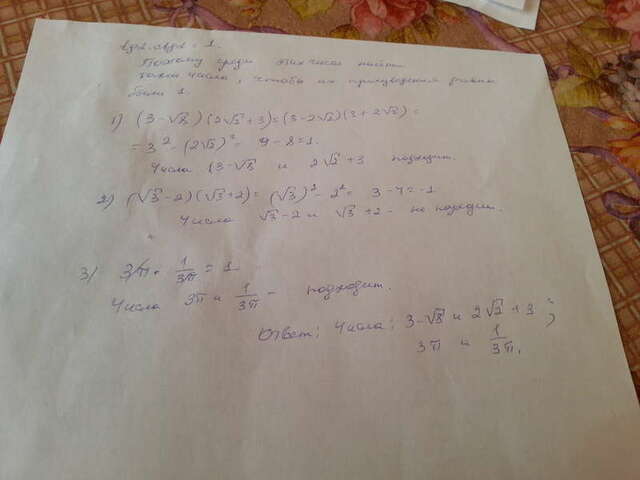 tgα·ctgα = 1.
Поэтому среди этих чисел найти
такие числа, чтобы их произведения равны
были 1.
1) (3-√8)(2√2+3)=(3-2√2)(3+2√2)=
= 3² - (2√2)² = 9-8=1.
Числа (3-√8 и 2√2+3 подходит.
2) (√3-2)(√3+2)= (√3)² - 2² = 3-4=-1
Числа √3-2 и √3+2 - не подходит.
3) 3π · 1/3π = 1
Числа 3π и 1/3π - подходит.
Ответ: Числа: 3-√8 и 2√2+3;
3π и 1/3π.